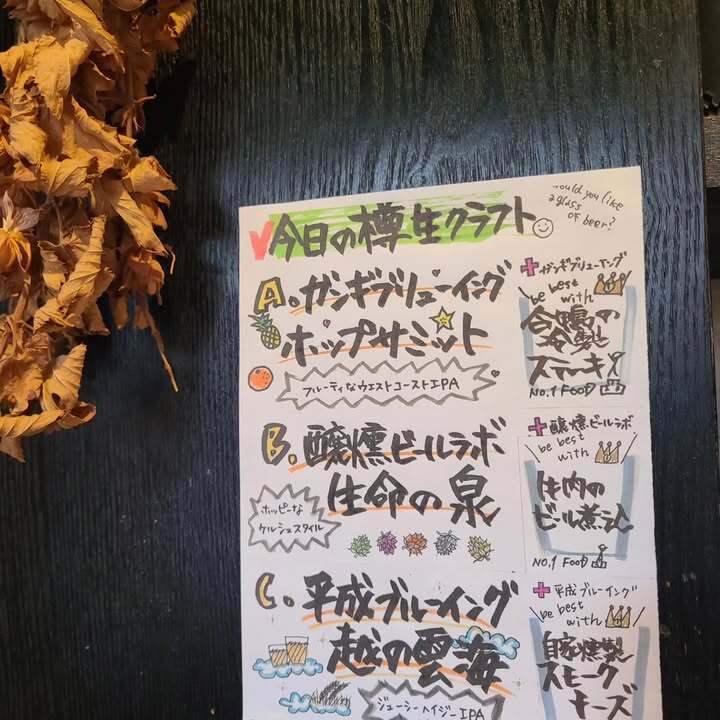 今日の樽生クラフト
would you like
a glass
OF beer?
A.ガンギブリューイング
ホップサミット
フルーティなウエストコーストIPA
+ガンギブリューイング
be best
with
合鴨の
燻製
ステーキ
NO.1 FOOD
B.醸燻ビールラボ
生命の泉
ホッピーな
ケルシュスタイル
+醸燻ビールラボ
be best
with
牛肉の
ビール煮込
NO.1 FOOD
C.平成ブルーイング
越の雲海
ジューシーヘイジーIPA
+平成ブルーイング
be best
with
自家燻製
スモーク
チーズ